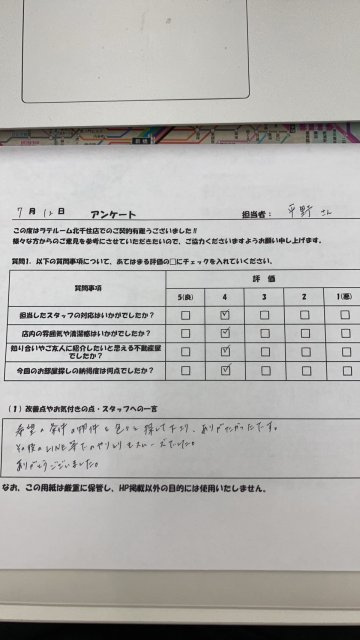 7月12日 アンケート 担当者: 平野 さん
この度はラテルーム北千住店でのご契約有難うございました!!
様々な方からのご意見を参考にさせていただきたいので、ご協力くださいますようお願い申し上げます。
質問1. 以下の質問事項について、あてはまる評価の□にチェックを入れていください。
質問事項 評価
5(良) 4 3 2 1(悪)
担当したスタッフの対応はいかがでしたか?
店内の雰囲気や清潔感はいかがでしたか?
知り合いやご友人に紹介したいと思える不動産屋
でしたか?
今回のお部屋探しの納得度は何点でしたか?
(1)改善点やお気付きの点・スタッフへの一言
希望の条件の物件を色々と探して下さり、ありがたかったです。
その後のLINE等でのやりとりもスムーズでした。
ありがとうございました。
なお、この用紙は厳重に保管し、HP掲載以外の目的には使用いたしません。